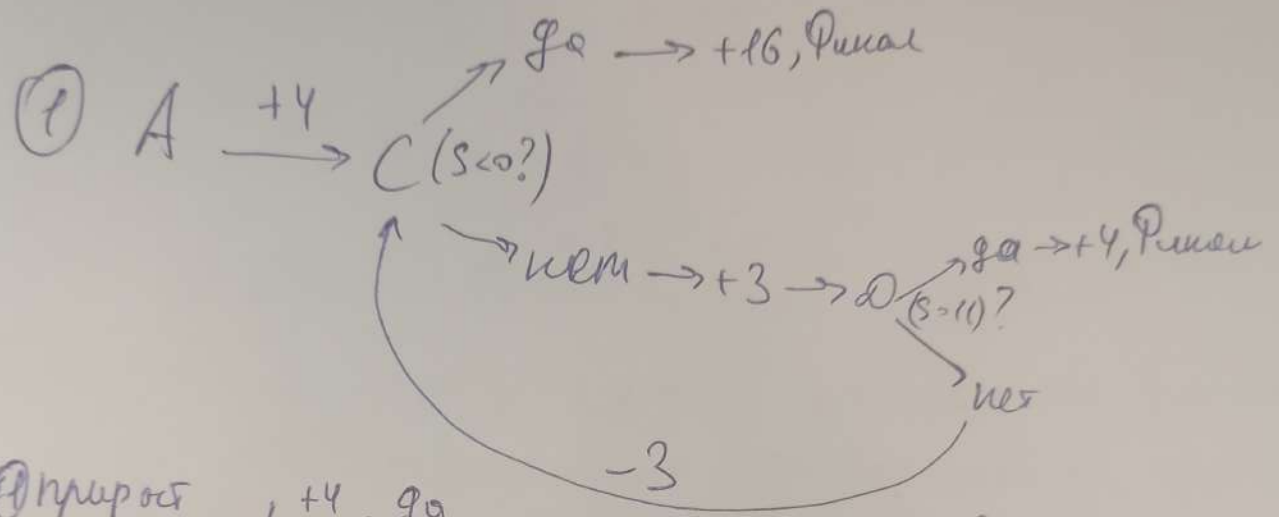 ① А +4 С (S<0?)
да → +16, Финал
нет → +3 → D (S>11)?
да → +4, Финал
нет
-3
① прирост , +4 да